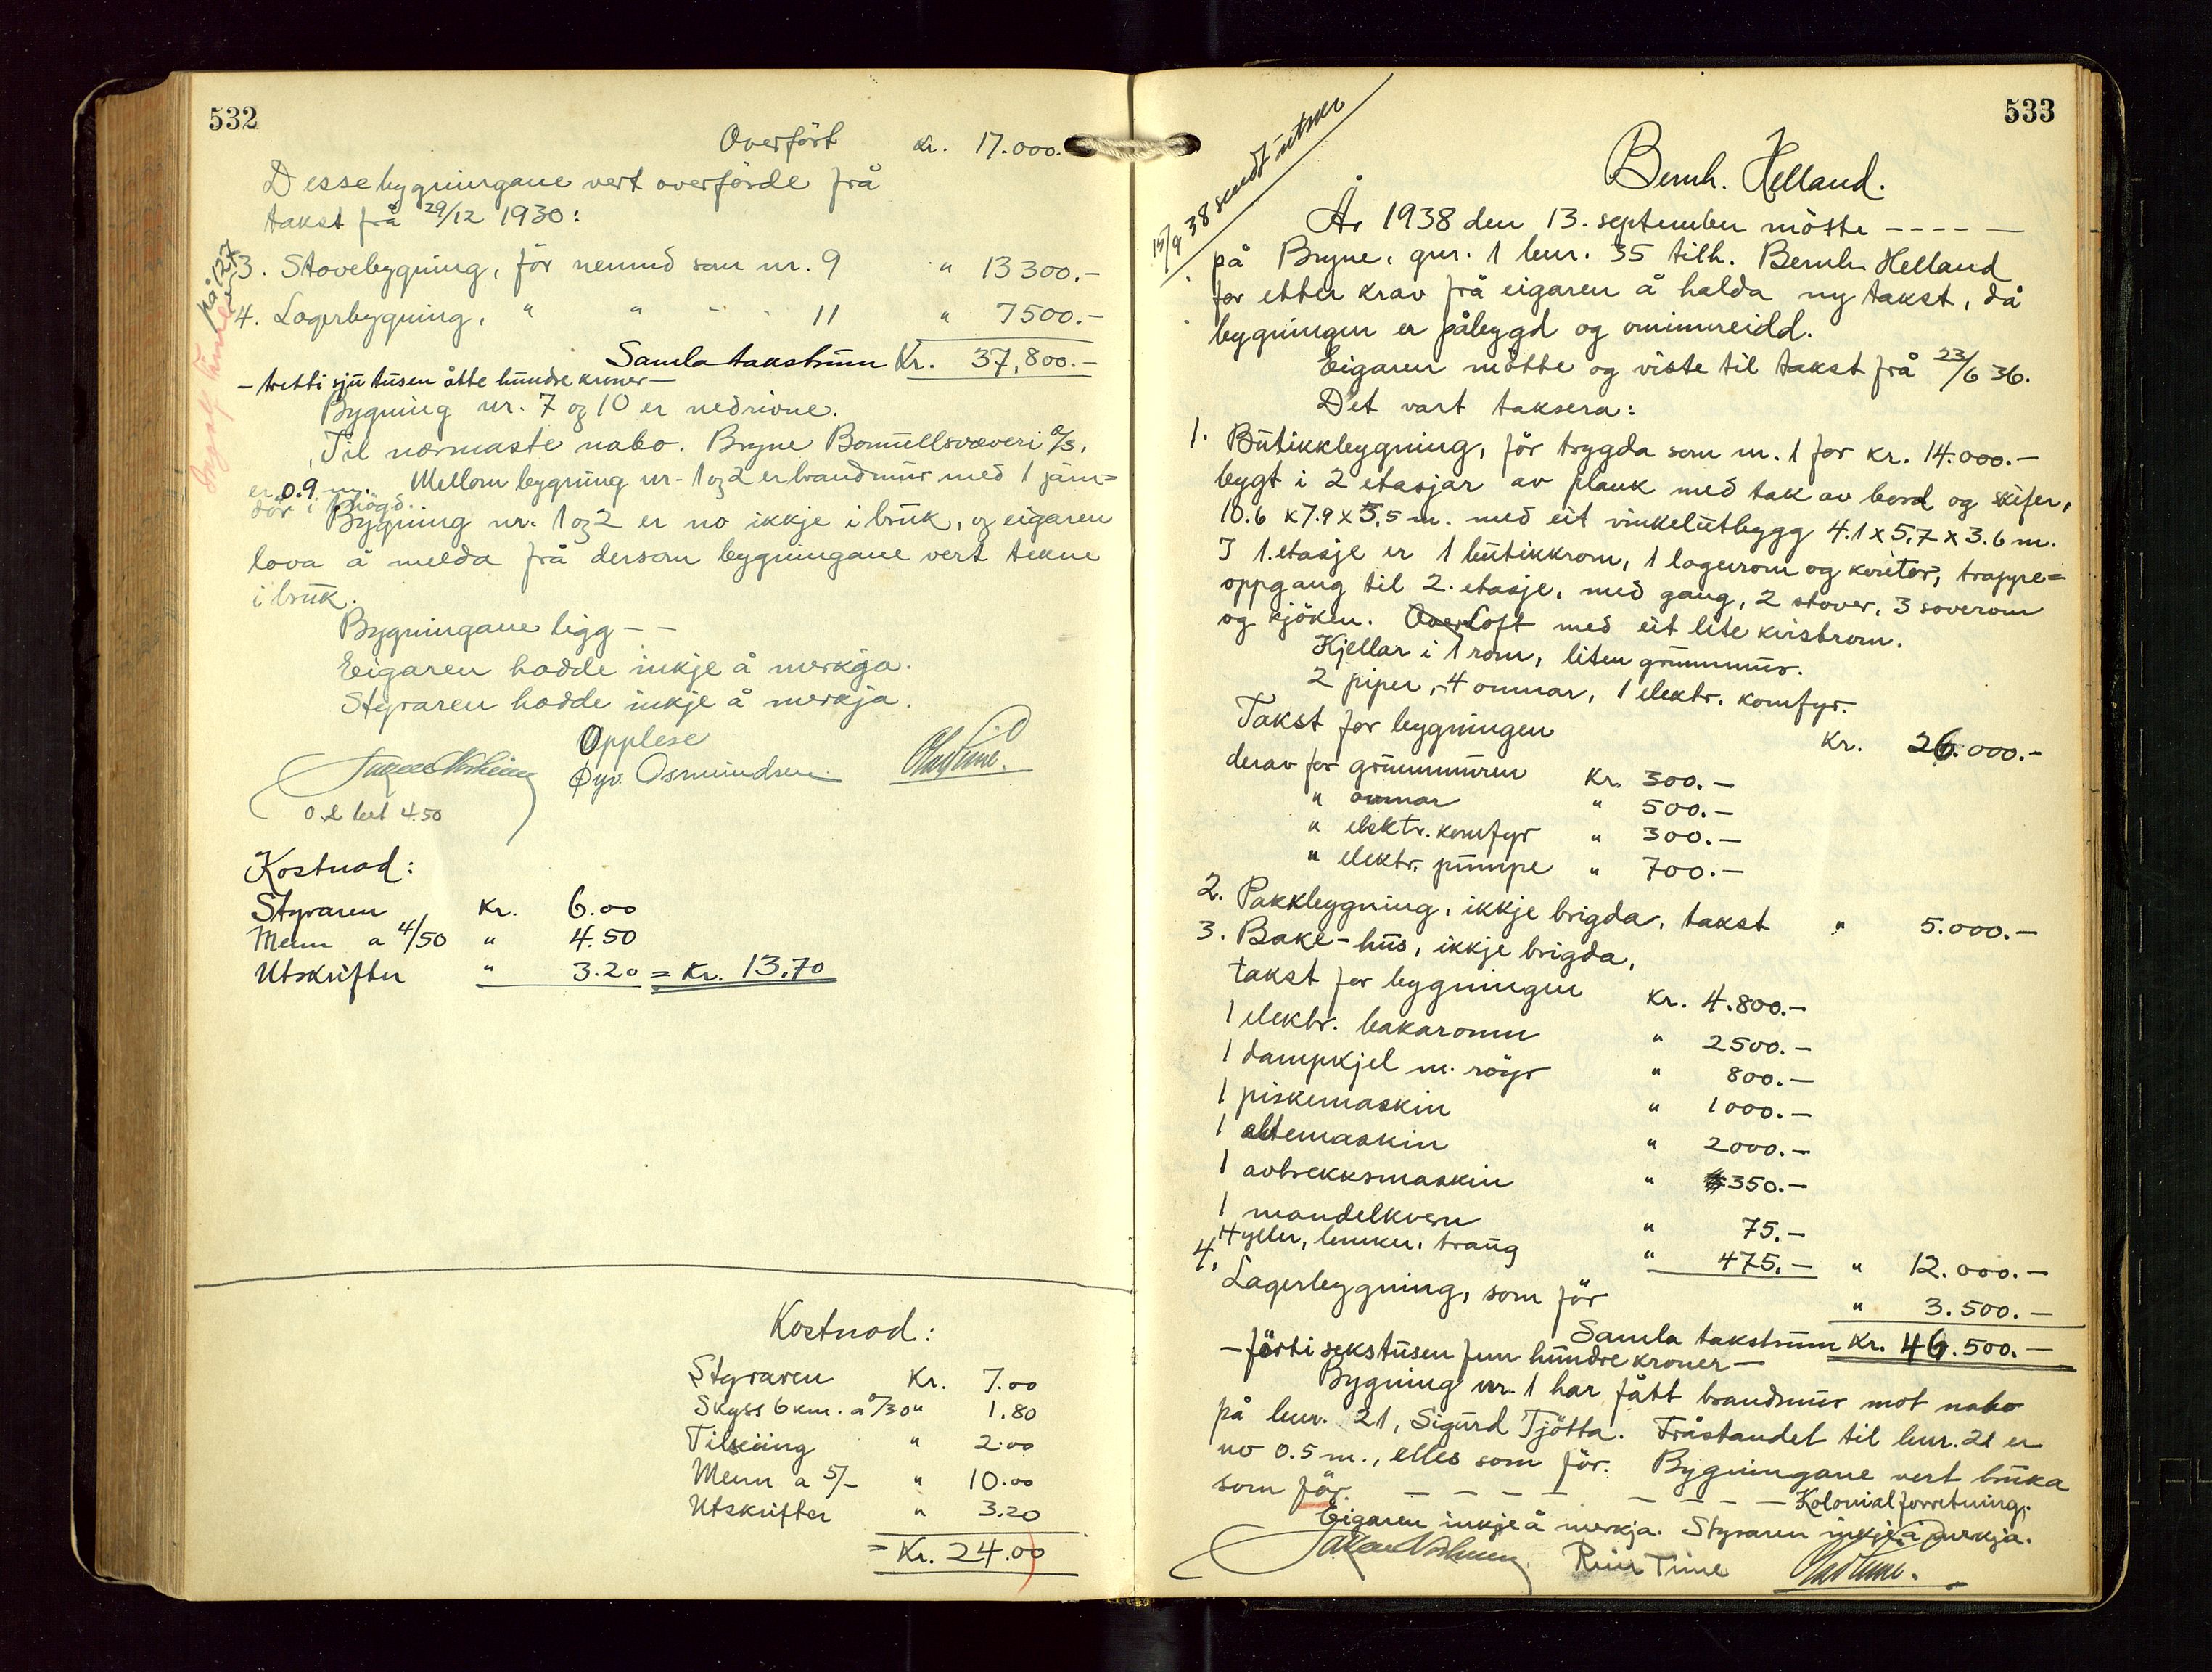 532
Overført Kr. 17.000.
Desse bygningane vert overförde frå
takst frå 29/12 1930:
3. Stovebygning, för nemnd som nr. 9 " 13300.-
4. Lagerbygning, " " " 11 " 7500.-
Samla takstsum Kr. 37,800.-
- tretti sju tusen åtte hundre kroner -
Bygning nr. 7 og 10 er nedrivne.
Til nærmaste nabo. Bryne Bomullsvæveri A/S,
er 0.9 m. Mellom bygning nr. 1 og 2 er brandmur med 1 járn=
dör i högd.
Bygning nr. 1 og 2 er no ikkje i bruk, og eigaren
lova å melda frå dersom bygningane vert tekne
i bruk.
Bygningane ligg - -
Eigaren hadde inkje å merkja.
Styraren hadde inkje å merkja.
Opplese
Øyv. Osmundsen
Olav Time.
4.50
Kostnad:
Styraren Kr. 6.00
Menn a 4/50 " 4.50
Utskrifter " 3.20 = Kr. 13.70
Kostnad:
Styraren Kr. 7.00
Skyss 6 km. a 0/30 " 1.80
Tilsiing " 2.00
Menn a 5/- " 10.00
Utskrifter " 3.20
= Kr. 24.00
533
15/9 38 sendt utskr
Bernh. Helland.
År 1938 den 13. september mötte - - - - -
på Bryne, gnr. 1 bnr. 35 tilh. Bernh. Helland
for etter krav frå eigaren å halda ny takst, då
bygningen er påbygd og ominnreidd.
Eigaren mötte og viste til takst frå 23/6 36.
Det vart taksera:
1. Butikkbygning, för trygda som nr. 1 for Kr. 14.000.-
bygt i 2 etasjar av plank med tak av bord og skifer,
10.6 x 7.9 x 5.5 m. med eit vinkelutbygg 4.1 x 5.7 x 3.6 m.
I 1. etasje er 1 butikkrom, 1 lagerrom og kontor, trappe=
oppgang til 2. etasje, med gang, 2 stover, 3 soverom
og kjöken. Over Loft med eit lite kvistrom.
Kjellar i 1 rom, liten grunnmur.
2 piper, 4 omnar, 1 elektr. komfyr.
Takst for bygningen Kr. 26.000.-
derav for grunnmuren Kr. 300.-
" omnar " 500.-
" elektr. komfyr " 300.-
" elektr. pumpe " 700.-
2. Pakkbygning, ikkje brigda, takst " 5.000.-
3. Bake-hus, ikkje brigda,
takst for bygningen Kr. 4.800.-
1 elektr. bakaromn " 2500.-
1 dampkjel m. röyr " 800.-
1 piskemaskin " 1000.-
1 eltemaskin " 2000.-
1 avtrekksmaskin " 350.-
1 mandelkvern " 75.-
Hyller, benker, traug " 475.- " 12.000.-
4. Lagerbygning, som för " 3.500.-
Samla takstsum Kr. 46.500.-
- förti seks tusen fem hundre kroner -
Bygning nr. 1 har fått brandmur mot nabo
på bnr. 21, Sigurd Tjötta. Fråstandet til bnr. 21 er
no 0.5 m., elles som för. Bygningane vert bruka
som för. - - - - - - - - Kolonialforretning.
Eigaren inkje å merkja. Styraren inkje å merkja.
Time
Olav Time.